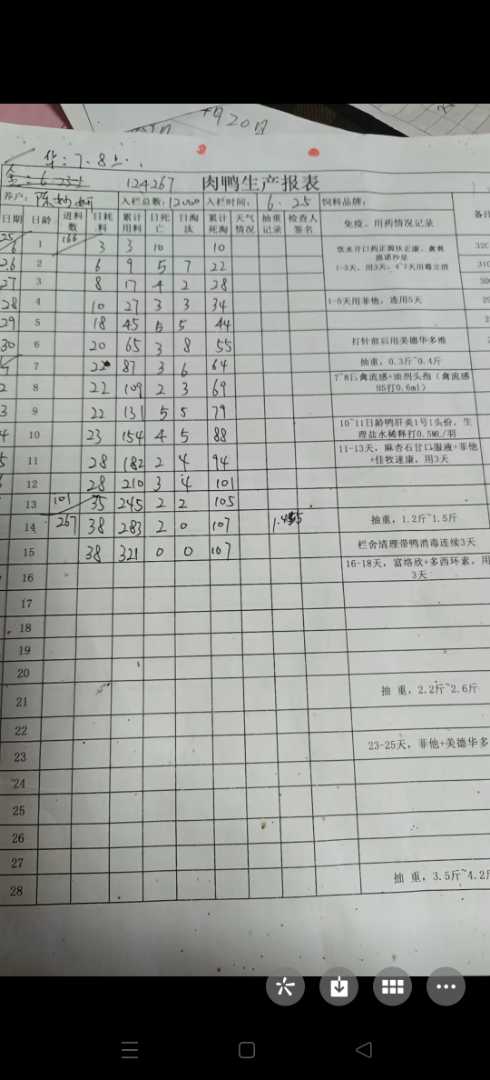 +920
华:7.8
124267 肉鸭生产报表
养户: 入栏总数: 12000 入栏时间: 6.25 饲料品牌:
日期 日龄 进料数 日耗料 累计用料 日死亡 日淘汰 累计死淘 天气情况 抽重记录 检查人签名 免疫、用药情况记录 备注
25/6 1 166 3 3 10 10 320
26 2 6 9 5 7 22 1-3天,用3天, 310
27 3 8 17 4 2 28 300
28 4 10 27 3 3 34 1-5天用菲他,选用5天
29 5 18 45 5 5 44
30 6 20 65 3 8 55 打针前后用美德华多维
7 22 87 3 6 64 抽重,0.3斤~0.4斤
2 8 22 109 2 3 69 7~8日禽流感+油剂头孢(禽流感H5打0.6ml)
3 9 22 131 5 5 79
4 10 23 154 4 5 88 10~11日龄鸭肝炎1号1头份,生理盐水稀释打0.5ML/羽
5 11 28 182 2 4 94 11-13天,麻杏石甘口服液+菲他+佳牧速康,用3天
6 12 28 210 3 4 101
13 101 35 245 2 2 105
14 267 38 283 2 0 107 1.455 抽重,1.2斤~1.5斤
15 38 321 0 0 107 栏舍清理带鸭消毒连续3天
16 16-18天,富络欣+多西环素,用3天
17
18
19
20
21 抽 重,2.2斤~2.6斤
22
23 23-25天,菲他+美德华多
24
25
26
27
28 抽 重,3.5斤~4.2斤